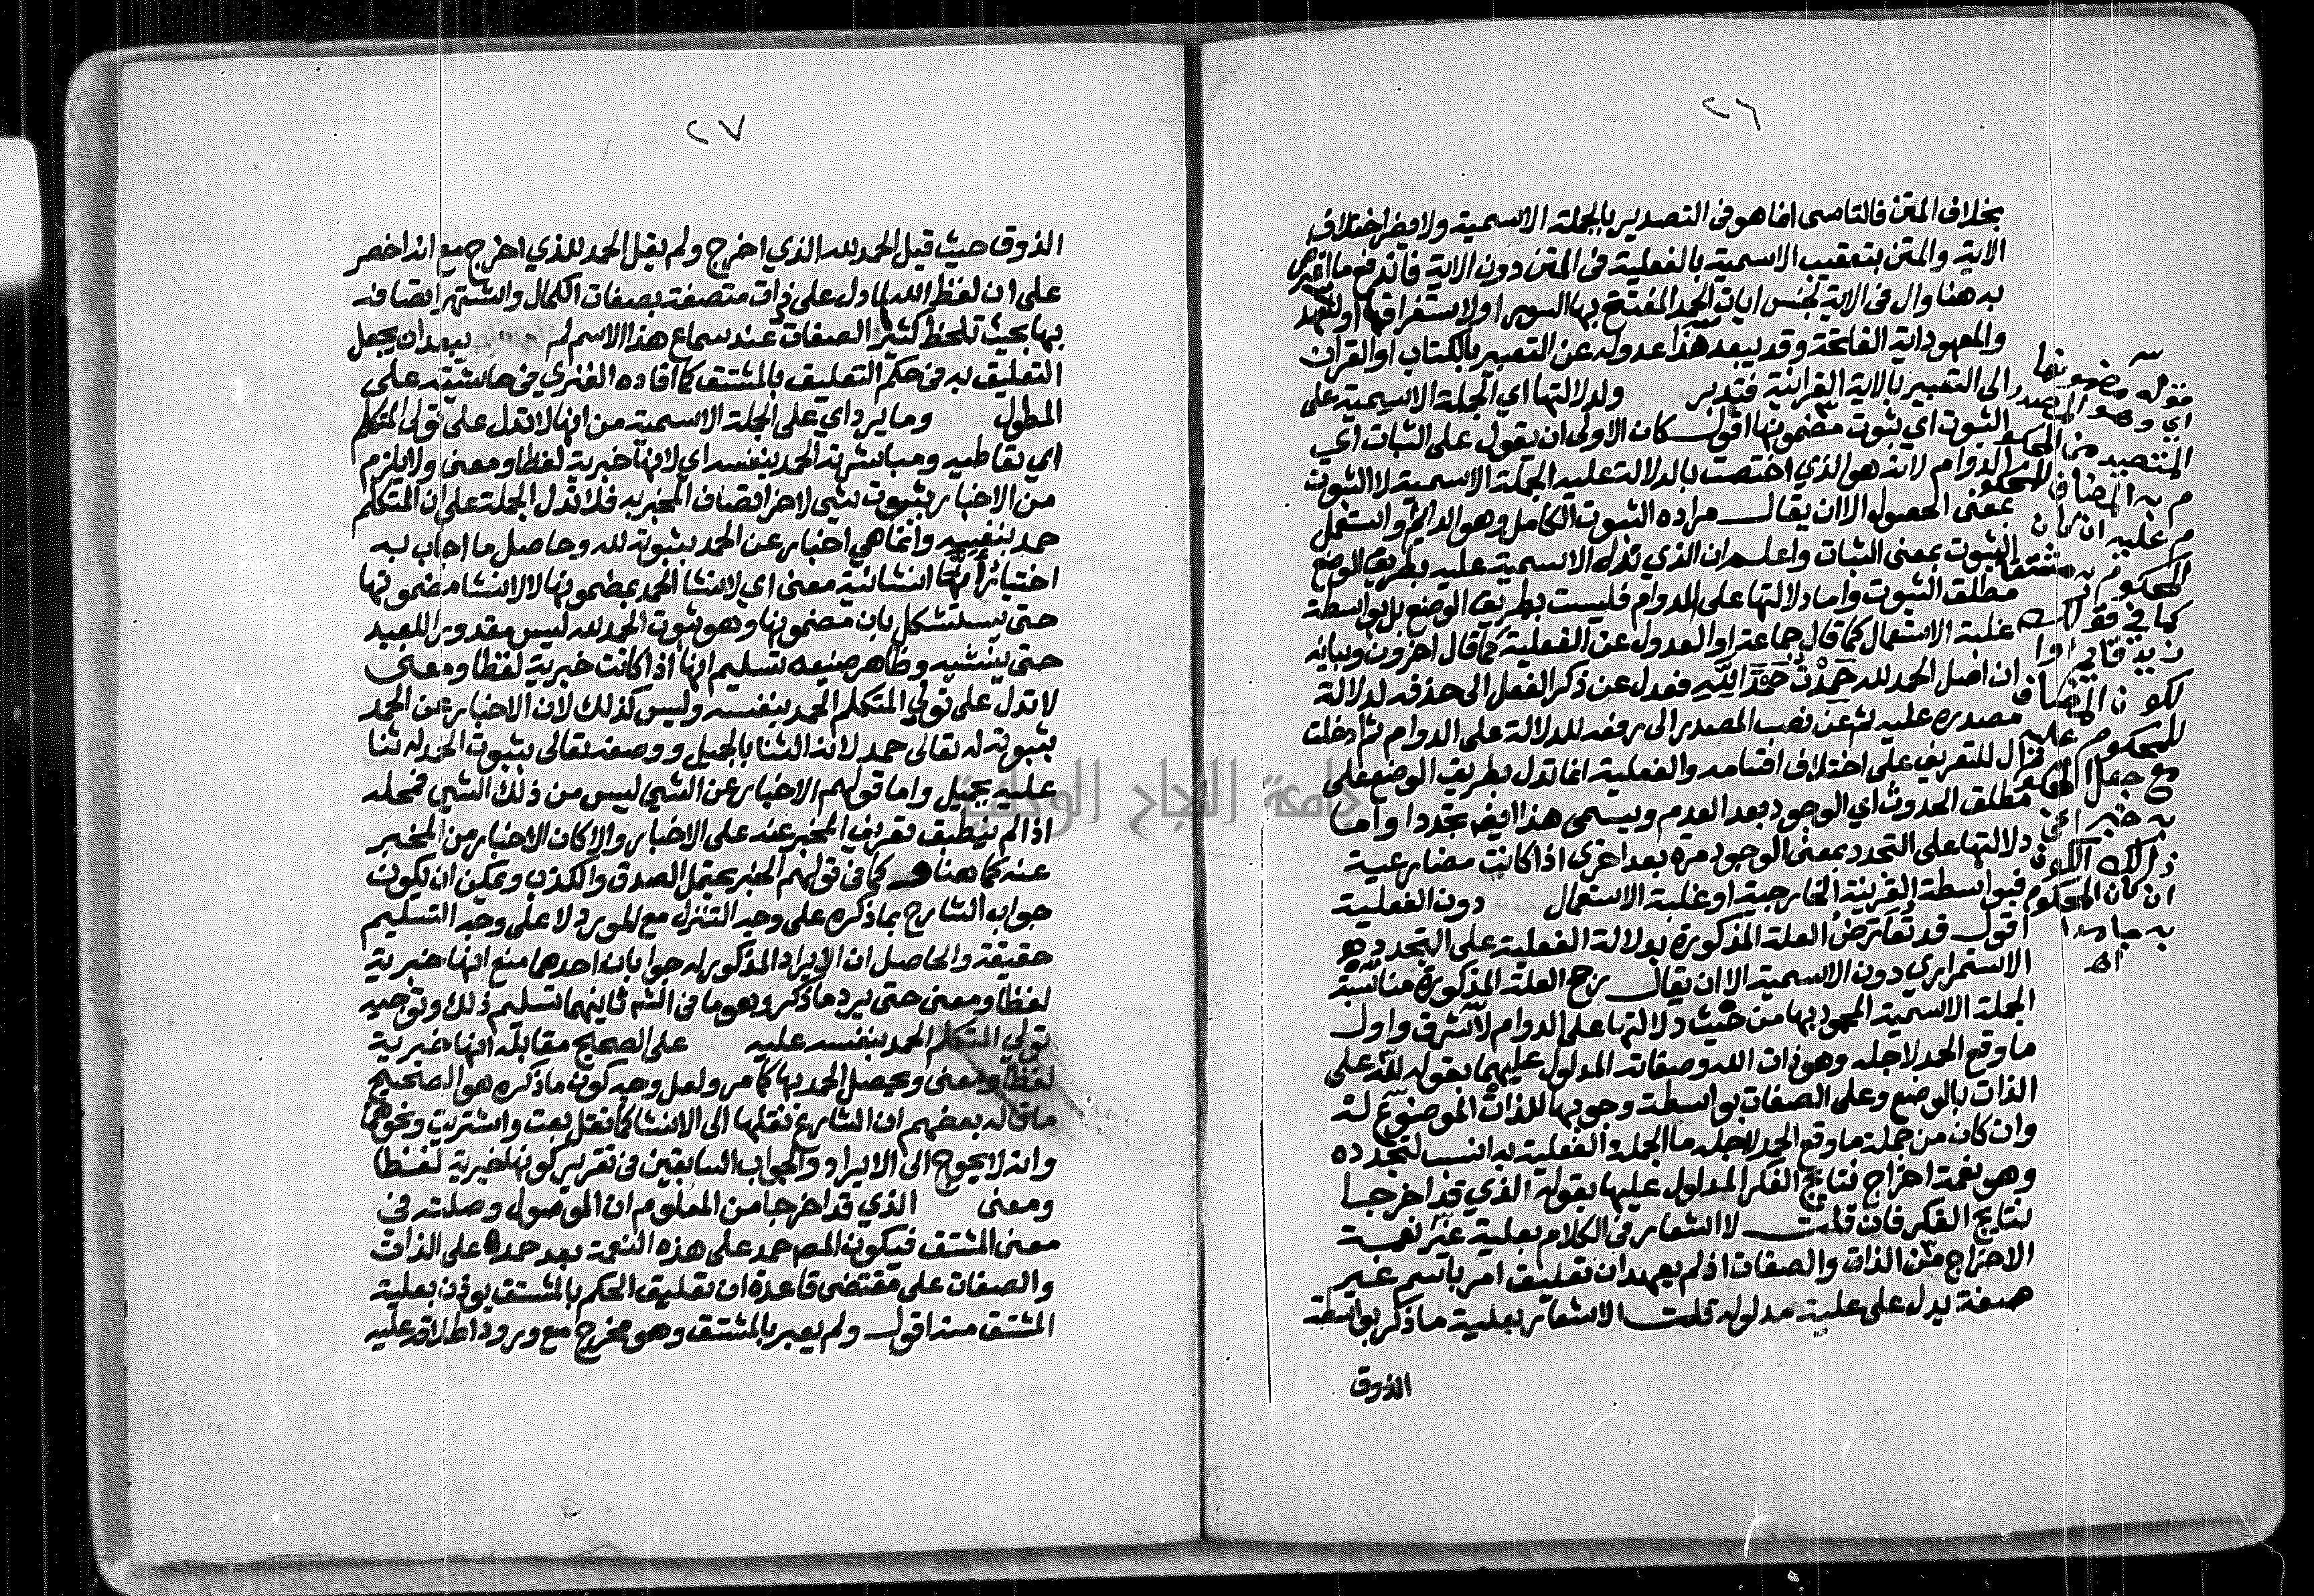 ٢٦
بخلاف المتن فالتاسى انما هو فى التصدير بالجملة الاسمية ولا يضر اختلاف
الاية والمتن بتعقيب الاسمية بالفعلية فى المتن دون الاية فاندفع ما اعترض
به هنا وال فى الاية لجنس ايات الحمد المفتتح بها السور او لاستغراقها او للعهد
والمعهود اية الفاتحة وقد يبعد هذا عدوله عن التعبير بالكتاب او القران
الى التعبير بالاية القرانية فتدبر ولدلالتها اي الجملة الاسمية على
الثبوت اي ثبوت مضمونها اقول كان الاولى ان يقول على الثبات اي
الدوام لانه هو الذي اختصت بالدلالة عليه الجملة الاسمية لا الثبوت
بمعنى الحصول الا ان يقال مراده الثبوت الكامل وهو الدائم واستعمل
الثبوت بمعنى الثبات واعلم ان الذي تدل الاسمية عليه بطريق الوضع
مطلق الثبوت واما دلالتها على الدوام فليست بطريق الوضع بل بواسطة
غلبة الاستعمال كما قال جماعة او العدول عن الفعلية كما قال اخرون وبيانه
ان اصل الحمد لله حمدت حمدا لله فعدل عن ذكر الفعل الى حذفه لدلالة
مصدره عليه ثم عن نصب المصدر الى رفعه للدلالة على الدوام ثم ادخلت
ال للتعريف على اختلاف اقسامه والفعلية انما تدل بطريق الوضع على
مطلق الحدوث اي الوجود بعد العدم ويسمى هذا ايض تجددا واما
دلالتها على التجدد بمعنى الوجود مرة بعد اخرى اذا كانت مضارعية
فبواسطة القرينة الخارجية او غلبة الاستعمال دون الفعلية
اقول قد تعترض العلة المذكورة بدلالة الفعلية على التجدد هو
الاستمراري دون الاسمية الا ان يقال رجح العلة المذكورة مناسبة
الجملة الاسمية المحمود بها من حيث دلالتها على الدوام لاشرف واول
ما وقع الحمد لاجله وهو ذات الله وصفاته المدلول عليهما بقوله لله على
الذات بالوضع وعلى الصفات بواسطة وجوبها للذات الموضوع له
وان كان من جملة ما وقع الحمد لاجله ما الجملة الفعلية به انسب لتجدده
وهو نعمة اخراج نتايج الفكر المدلول عليها بقوله الذي قد اخرجا
نتايج الفكر فان قلت لا اشعار فى الكلام بعلية غير نعمة
الاخراج من الذات والصفات اذ لم يعهد ان تعليق امر باسم غير
صفة يدل على علية مدلوله قلت الاشعار بعلية ما ذكر بواسطة
الذوق
قوله مضمونها
اي وهو المصدر
المتصيد من المحكو
م به المضاف للمحكو
م عليه ان كان
المحكوم به مشتقا
كما في قولك
زيد قائم او
لكون المضاف
للمحكوم عليه
مع جعل المحكو
به خبرا عن
ذلك الكون
ان كان المحكوم
به جامدا
اهـ
٢٧
الذوق حيث قيل الحمد لله الذي اخرج ولم يقل الحمد للذي اخرج مع انه اخصر
على ان لفظ الله لما دل على ذات متصفة بصفات الكمال واشتهر اتصافه
بها بحيث تلحظ كثير الصفات عند سماع هذا الاسم لم يبعد ان يجعل
التعليق به فى حكم التعليق بالمشتق كما افاده الفنري فى حاشيته على
المطول وما يرد اي على الجملة الاسمية من انها لا تدل على تولى المتكلم
اي تعاطيه ومباشرته الحمد بنفسه اي لانها خبرية لفظا ومعنى ولا يلزم
من الاخبار بثبوت شي لاخر اتصاف المخبر به فلا تدل الجملة على ان المتكلم
حمد بنفسه وانما هي اخبار عن الحمد بثبوته لله وحاصل ما اجاب به
اختيار انها انشائية معنى اي لانشا الحمد بمضمونها لا لانشا مضمونها
حتى يستشكل بان مضمونها وهو ثبوت الحمد لله ليس مقدور اللعبد
حتى ينشيه وظاهر صنيعه تسليم انها اذا كانت خبرية لفظا ومعنى
لا تدل على تولي المتكلم الحمد بنفسه وليس كذلك لان الاخبار عن الحمد
بثبوته له تعالى حمد لانه الثنا بالجميل ووصفه تعالى بثبوت الحمد له ثنا
عليه بجميل واما قولهم الاخبار عن الشي ليس من ذلك الشي فمحله
اذا لم ينطبق تعريف المخبر عنه على الاخبار والا كان الاخبار من المخبر
عنه كما هنا وكما فى قولهم الخبر يحتمل الصدق والكذب ويمكن ان يكون
جواب الشارح بما ذكره على وجه التنزل مع المورد لا على وجه التسليم
حقيقة والحاصل ان الايراد المذكور له جوابان احدهما منع انها خبرية
لفظا ومعنى حتى يرد ما ذكر وهو ما فى الشه ثانيهما تسليم ذلك وتوجيه
تولي المتكلم الحمد بنفسه عليه على الصحيح مقابله انها خبرية
لفظا ومعنى ويحصل الحمد بها كما مر ولعل وجه كون ما ذكره هو الصحيح
ما قاله بعضهم ان الشارع نقلها الى الانشا كما نقل بعت واشتريت ونحوهما
وانه لا يحوج الى الايراد والجواب السابقين فى تقرير كونها خبرية لفظا
ومعنى الذي قد اخرجا من المعلوم ان الموصول وصلته فى
معنى المشتق فيكون المصـ حمد على هذه النعمة بعد حمده على الذات
والصفات على مقتضى قاعدة ان تعليق الحكم بالمشتق يوذن بعلية
المشتق منه اقول ولم يعبر بالمشتق وهو مخرج مع ورود اطلاقه عليه
جامعة النجاح الوطنية